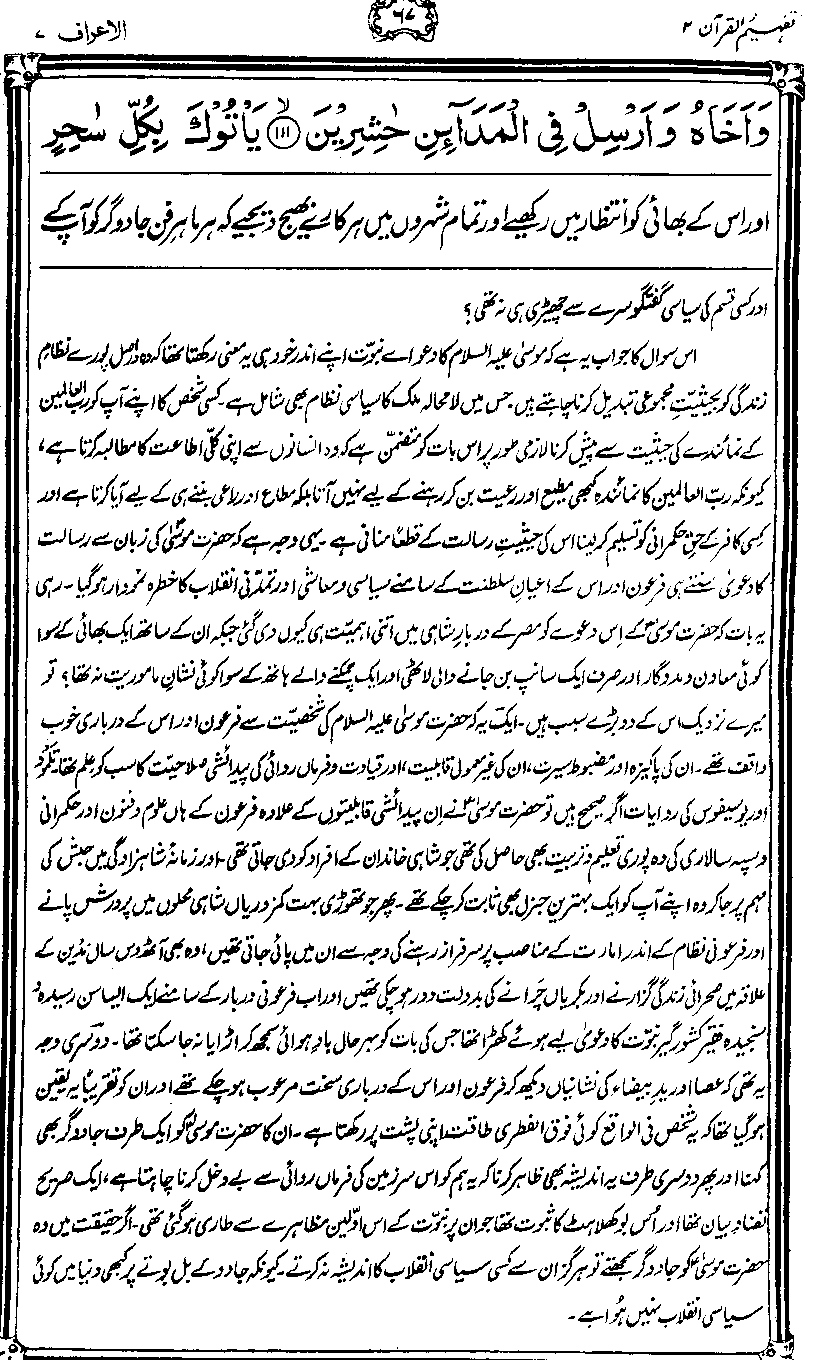 تفہیم القرآن ۲
۶۷
الاعراف ۷
وَاَخَاهُ وَاَرْسِلْ فِي الْمَدَآىِٕنِ حٰشِرِيْنَ ۙ۝۱۱۱ يَاْتُوْكَ بِكُلِّ سٰحِرٍ
اور اس کے بھائی کو انتظار میں رکھیے اور تمام شہروں میں ہرکارے بھیج دیجیے کہ ہر ماہرِ فن جادوگر کو آپ کے
اور کسی قسم کی سیاسی گفتگو سرے سے چھیڑی ہی نہ تھی؟
اس سوال کا جواب یہ ہے کہ موسیٰ علیہ السلام کا دعوائے نبوّت اپنے اندر خود ہی یہ معنی رکھتا تھا کہ وہ دراصل پورے نظامِ
زندگی کو بحیثیتِ مجموعی تبدیل کرنا چاہتے ہیں، جس میں لامحالہ ملک کا سیاسی نظام بھی شامل ہے۔ کسی شخص کا اپنے آپ کو ربّ العالمین
کے نمائندے کی حیثیت سے پیش کرنا لازمی طور پر اس بات کو متضمّن ہے کہ وہ انسانوں سے اپنی کلّی اطاعت کا مطالبہ کرتا ہے،
کیونکہ ربّ العالمین کا نمائندہ کبھی مطیع اور رعیت بن کر رہنے کے لیے نہیں آتا بلکہ مطاع اور راعی بننے ہی کے لیے آیا کرتا ہے اور
کسی کافر کے حقِ حکمرانی کو تسلیم کر لینا اس کی حیثیتِ رسالت کے قطعاً منافی ہے۔ یہی وجہ ہے کہ حضرت موسیٰؑ کی زبان سے رسالت
کا دعویٰ سنتے ہی فرعون اور اس کے اعیانِ سلطنت کے سامنے سیاسی و معاشی اور تمدّنی انقلاب کا خطرہ نمودار ہو گیا۔ رہی
یہ بات کہ حضرت موسیٰؑ کے اِس دعوے کو مصر کے دربارِ شاہی میں اتنی اہمیّت ہی کیوں دی گئی جبکہ ان کے ساتھ ایک بھائی کے سوا
کوئی معاون و مددگار اور صرف ایک سانپ بن جانے والی لاٹھی اور ایک چمکنے والے ہاتھ کے سوا کوئی نشانِ ماموریت نہ تھا؟ تو
میرے نزدیک اس کے دو بڑے سبب ہیں۔ ایک یہ کہ حضرت موسیٰ علیہ السلام کی شخصیّت سے فرعون اور اس کے درباری خوب
واقف تھے۔ ان کی پاکیزہ اور مضبوط سیرت، ان کی غیر معمولی قابلیت، اور قیادت و فرماں روائی کی پیدائشی صلاحیّت کا سب کو علم تھا۔ تلمود
اور یوسیفوس کی روایات اگر صحیح ہیں تو حضرت موسیٰؑ نے اِن پیدائشی قابلیتوں کے علاوہ فرعون کے ہاں علوم و فنون اور حکمرانی
و سپہ سالاری کی وہ پوری تعلیم و تربیت بھی حاصل کی تھی جو شاہی خاندان کے افراد کو دی جاتی تھی۔ اور زمانۂ شاہزادگی میں حبش کی
مہم پر جا کر وہ اپنے آپ کو ایک بہترین جنرل بھی ثابت کر چکے تھے۔ پھر جو تھوڑی بہت کمزوریاں شاہی محلوں میں پرورش پانے
اور فرعونی نظام کے اندر امارت کے مناصب پر سرفراز رہنے کی وجہ سے ان میں پائی جاتی تھیں، وہ بھی آٹھ دس سال مَدیَن کے
علاقہ میں صحرائی زندگی گزارنے اور بکریاں چَرانے کی بدولت دور ہو چکی تھیں اور اب فرعونی دربار کے سامنے ایک ایسا سن رسیدہ و
سنجیدہ فقیرِ کشور گیر نبوّت کا دعویٰ لیے ہوئے کھڑا تھا جس کی بات کو بہرحال بادِ ہوائی سمجھ کر اڑایا نہ جا سکتا تھا۔ دوسری وجہ
یہ تھی کہ عصا اور یدِ بیضاء کی نشانیاں دیکھ کر فرعون اور اس کے درباری سخت مرعوب ہو چکے تھے اور ان کو تقریباً یہ یقین
ہو گیا تھا کہ یہ شخص فی الواقع کوئی فوق الفطری طاقت اپنی پشت پر رکھتا ہے۔ ان کا حضرت موسیٰؑ کو ایک طرف جادوگر بھی
کہنا اور پھر دوسری طرف یہ اندیشہ بھی ظاہر کرنا کہ یہ ہم کو اس سرزمین کی فرماں روائی سے بے دخل کرنا چاہتا ہے، ایک صریح
تضادِ بیان تھا اور اُس بوکھلاہٹ کا ثبوت تھا جو ان پر نبوّت کے اس اوّلین مظاہرے سے طاری ہو گئی تھی۔ اگر حقیقت میں وہ
حضرت موسیٰؑ کو جادوگر سمجھتے تو ہرگز ان سے کسی سیاسی انقلاب کا اندیشہ نہ کرتے۔ کیونکہ جادو کے بل بوتے پر کبھی دنیا میں کوئی
سیاسی انقلاب نہیں ہُوا ہے۔